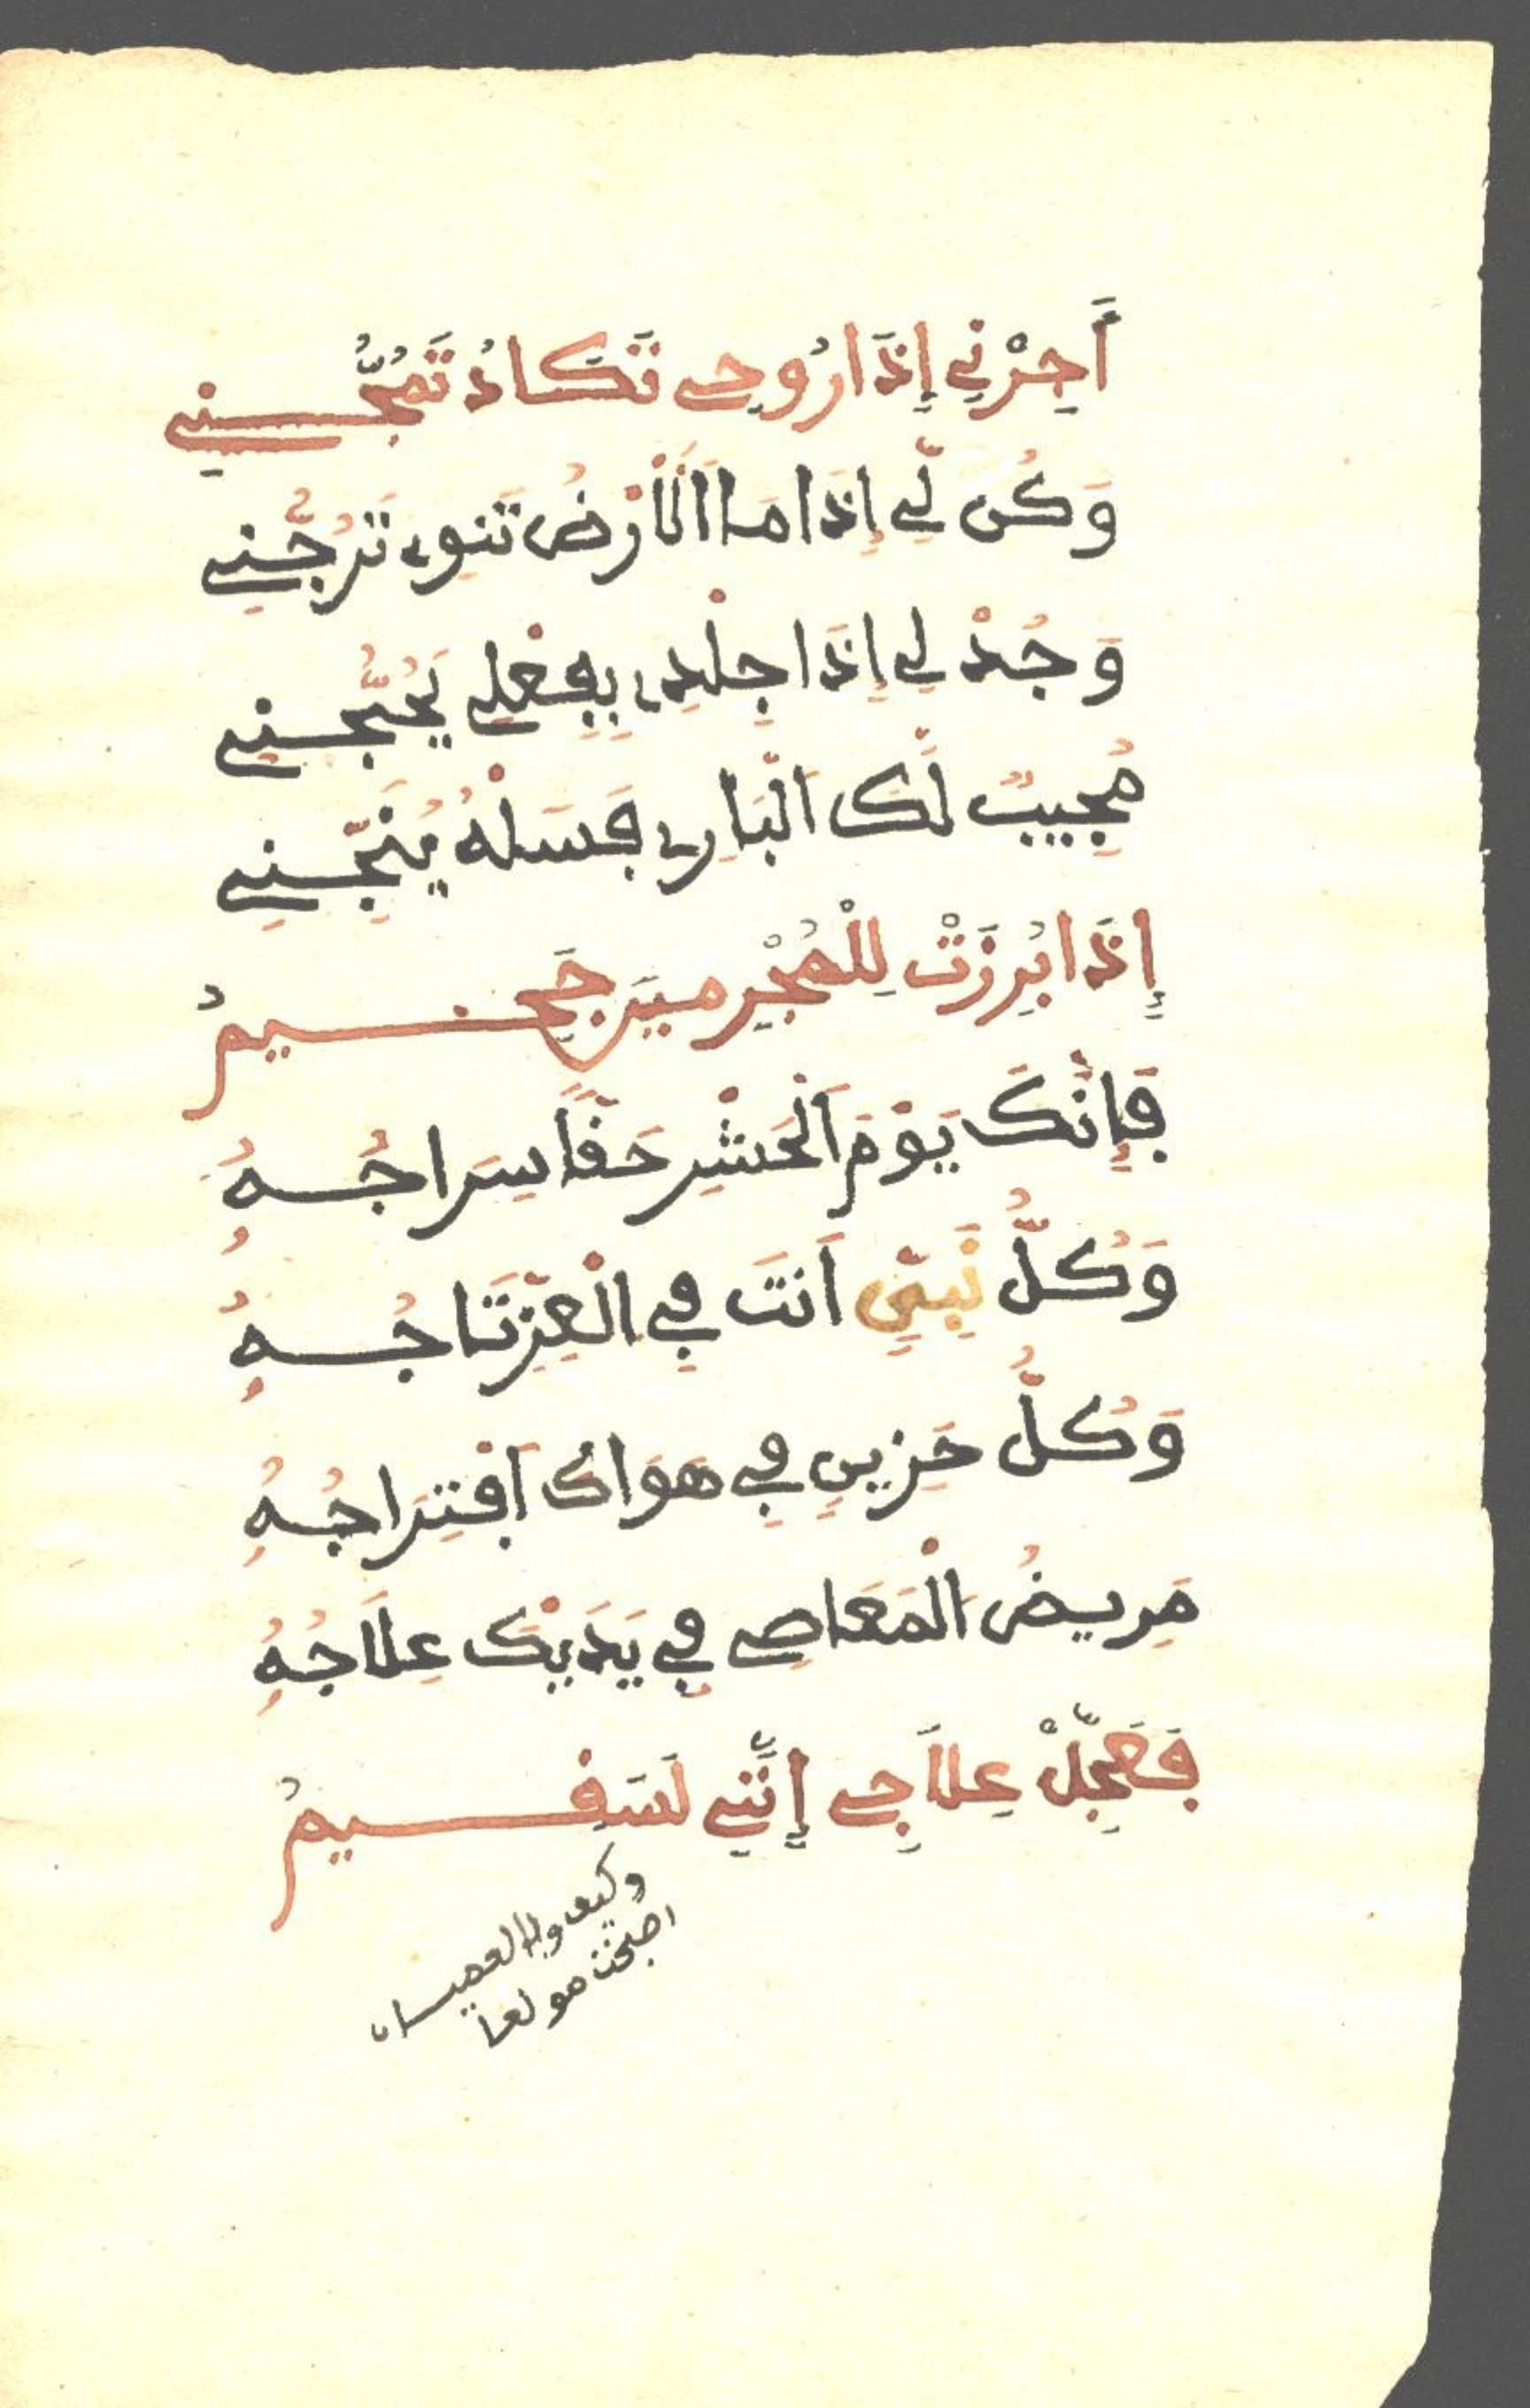 أَجِرْنِي إِذَا رُوحِي تَكَادُ تَمُجُّنِي
وَكُن لِّي إِذَا مَا اَلَارْضُ تَنْوِي تَرُجُّنِي
وَجُدْ لِي إِذَا جِلْدِي بِفِعْلِي يَحُجُّنِي
مُجِيبٌ لَّكَ اَلْبَارِي فَسَلْهُ يُنَجِّنِي
إِذَا بُرِزَتْ لِلْمُجْرِمِينَ جَحِيمُ
فَإِنَّكَ يَوْمَ اَلْحَشْرِ حَقًّا سِرَاجُهُ
وَكُلُّ نَبِيٍّ اَنتَ فِي الْعِزِّ تَاجُهُ
وَكُلُّ حَزِينٍ فِي هَوَاكَ اَفْتِرَاجُهُ
مَرِيضُ الْمَعَاصِي فِي يَدَيْكَ عِلَاجُهُ
فَعَجِّلْ عِلَاجِي إِنَّنِي لَسَقِيمُ
وكيف
اصبحت مولعا